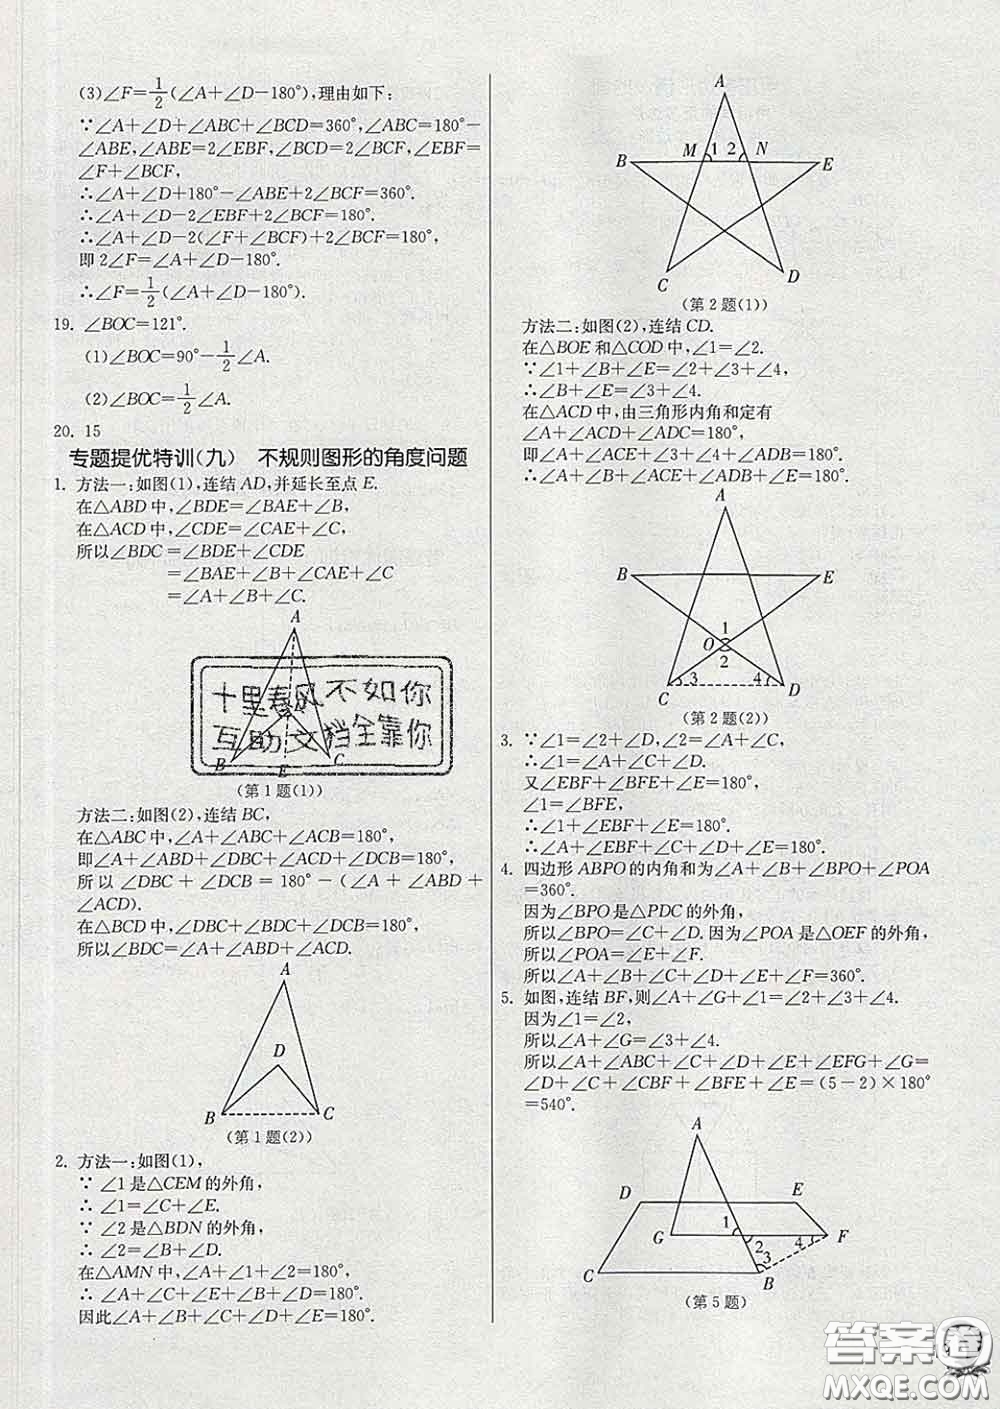 (3)∠F=1/2(∠A+∠D−180°),理由如下:
∵∠A+∠D+∠ABC+∠BCD=360°,∠ABC=180°−
∠ABE,∠ABE=2∠EBF,∠BCD=2∠BCF,∠EBF=
∠F+∠BCF,
∴∠A+∠D+180°−∠ABE+2∠BCF=360°.
∴∠A+∠D−2∠EBF+2∠BCF=180°.
∴∠A+∠D−2(∠F+∠BCF)+2∠BCF=180°,
即2∠F=∠A+∠D−180°.
∴∠F=1/2(∠A+∠D−180°).
19. ∠BOC=121°.
(1)∠BOC=90°−1/2∠A.
(2)∠BOC=1/2∠A.
20. 15
专题提优特训(九) 不规则图形的角度问题
1. 方法一:如图(1),连结AD,并延长至点E.
在△ABD中,∠BDE=∠BAE+∠B,
在△ACD中,∠CDE=∠CAE+∠C,
所以∠BDC=∠BDE+∠CDE
=∠BAE+∠B+∠CAE+∠C
=∠A+∠B+∠C.
A
十里春风不如你
互助文档全靠你
B
E
C
(第1题(1))
方法二:如图(2),连结BC,
在△ABC中,∠A+∠ABC+∠ACB=180°,
即∠A+∠ABD+∠DBC+∠ACD+∠DCB=180°,
所以∠DBC+∠DCB=180°−(∠A+∠ABD+
∠ACD).
在△BCD中,∠BDC+∠DBC+∠DCB=180°,
所以∠BDC=∠A+∠ABD+∠ACD.
A
D
B
C
(第1题(2))
2. 方法一:如图(1),
∵ ∠1是△CEM的外角,
∴ ∠1=∠C+∠E.
∵ ∠2是△BDN的外角,
∴ ∠2=∠B+∠D.
在△AMN中,∠A+∠1+∠2=180°,
∴ ∠A+∠C+∠E+∠B+∠D=180°.
因此∠A+∠B+∠C+∠D+∠E=180°.
A
B M 1 2 N E
C D
(第2题(1))
方法二:如图(2),连结CD.
在△BOE和△COD中,∠1=∠2.
∵∠1+∠B+∠E=∠2+∠3+∠4,
∴∠B+∠E=∠3+∠4.
在△ACD中,由三角形内角和定有
∠A+∠ACD+∠ADC=180°,
即∠A+∠ACE+∠3+∠4+∠ADB=180°.
∴∠A+∠B+∠ACE+∠ADB+∠E=180°.
A
B E
1
O
2
C 3 4 D
(第2题(2))
3. ∵∠1=∠2+∠D,∠2=∠A+∠C,
∴∠1=∠A+∠C+∠D.
又∠EBF+∠BFE+∠E=180°,
∠1=∠BFE,
∴∠1+∠EBF+∠E=180°.
∴∠A+∠EBF+∠C+∠D+∠E=180°.
4. 四边形ABPO的内角和为∠A+∠B+∠BPO+∠POA
=360°.
因为∠BPO是△PDC的外角,
所以∠BPO=∠C+∠D. 因为∠POA是△OEF的外角,
所以∠POA=∠E+∠F.
所以∠A+∠B+∠C+∠D+∠E+∠F=360°.
5. 如图,连结BF,则∠A+∠G+∠1=∠2+∠3+∠4.
因为∠1=∠2,
所以∠A+∠G=∠3+∠4.
所以∠A+∠ABC+∠C+∠D+∠E+∠EFG+∠G=
∠D+∠C+∠CBF+∠BFE+∠E=(5−2)×180°
=540°.
A
D E
G 1 2 4 F
3
C B
(第5题)
答案圈
MXQE.COM